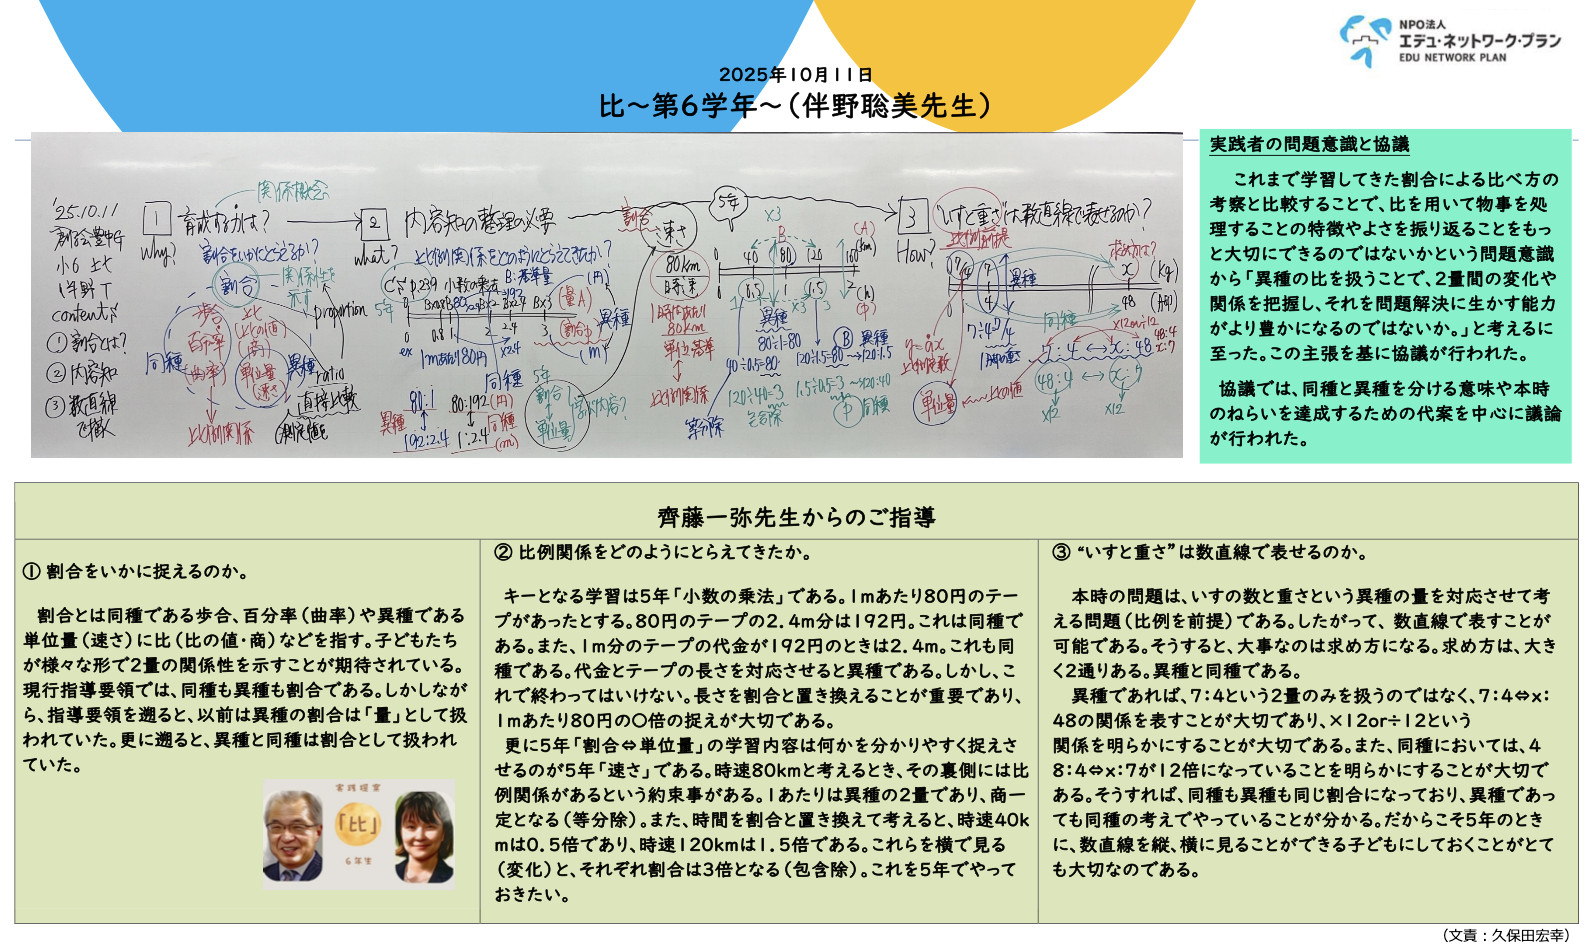 NPO法人
エデュ・ネットワーク・プラン
EDU NETWORK PLAN
2025年10月11日
比~第6学年~(伴野聡美先生)
'25.10.11
小6 比
伴野T
content's
①割合とは?
②内容知
③数直線
関係概念
1 育成する力は?
Why?
割合をいかにとらえるか?
割合
関係性を
示す
proportion
歩合
百分率
同種
比
(比の値)
(商)
単位量
(速さ)
異種
ratio
直接比較
測定値
比例関係
2 内容知の整理の必要
what?
比例関係をどのようにとらえてきたか?
p.239 小数の乗法
B:基準量
5年
0 0.8 1 2 2.4 3
(円)
(量A)
(割合P)
(m)
異種
ex 1mあたり80円
×2.4
同種
80:1
80:192(円)
異種
192:2.4
1:2.4
同種
(m)
5年
割合
単位量
学習内容?
5年
割合
速さ
80km
時速
1時間あたり
80km
単位基準
比例関係
×3
0 40 80 120 160
(km)
(A)
(B)
0 0.5 1 1.5 2
(h)
(P)
×3
異種
80÷1=80
40÷0.5=80
120÷1.5=80
異種
120÷40=3
1.5÷0.5=3
包含除
同種
等分除
3 "いすと重さ"は数直線で表せるのか?
How?
比例前提
求め方は?
異種
x (kg)
48 (脚)
同種
7÷4=7/4
1脚の重さ
y=ax
比例定数
単位量
比の値
×12or÷12
7:4⇔x:48
48:4
x:7
48:4⇔x:7
×12
×12
実践者の問題意識と協議
これまで学習してきた割合による比べ方の
考察と比較することで、比を用いて物事を処
理することの特徴やよさを振り返ることをもっ
と大切にできるのではないかという問題意識
から「異種の比を扱うことで、2量間の変化や
関係を把握し、それを問題解決に生かす能力
がより豊かになるのではないか。」と考えるに
至った。この主張を基に協議が行われた。
協議では、同種と異種を分ける意味や本時
のねらいを達成するための代案を中心に議論
が行われた。
齊藤一弥先生からのご指導
① 割合をいかに捉えるのか。
割合とは同種である歩合、百分率(曲率)や異種である
単位量(速さ)に比(比の値・商)などを指す。子どもたち
が様々な形で2量の関係性を示すことが期待されている。
現行指導要領では、同種も異種も割合である。しかしなが
ら、指導要領を遡ると、以前は異種の割合は「量」として扱
われていた。更に遡ると、異種と同種は割合として扱われ
ていた。
実践提案
「比」
6年生
② 比例関係をどのようにとらえてきたか。
キーとなる学習は5年「小数の乗法」である。1mあたり80円のテー
プがあったとする。80円のテープの2.4m分は192円。これは同種で
ある。また、1m分のテープの代金が192円のときは2.4m。これも同
種である。代金とテープの長さを対応させると異種である。しかし、こ
れで終わってはいけない。長さを割合と置き換えることが重要であり、
1mあたり80円の〇倍の捉えが大切である。
更に5年「割合⇔単位量」の学習内容は何かを分かりやすく捉えさ
せるのが5年「速さ」である。時速80kmと考えるとき、その裏側には比
例関係があるという約束事がある。1あたりは異種の2量であり、商一
定となる(等分除)。また、時間を割合と置き換えて考えると、時速40k
mは0.5倍であり、時速120kmは1.5倍である。これらを横で見る
(変化)と、それぞれ割合は3倍となる(包含除)。これを5年でやって
おきたい。
③ “いすと重さ”は数直線で表せるのか。
本時の問題は、いすの数と重さという異種の量を対応させて考
える問題(比例を前提)である。したがって、数直線で表すことが
可能である。そうすると、大事なのは求め方になる。求め方は、大き
く2通りある。異種と同種である。
異種であれば、7:4という2量のみを扱うのではなく、7:4⇔x:
48の関係を表すことが大切であり、×12or÷12という
関係を明らかにすることが大切である。また、同種においては、4
8:4⇔x:7が12倍になっていることを明らかにすることが大切で
ある。そうすれば、同種も異種も同じ割合になっており、異種であっ
ても同種の考えでやっていることが分かる。だからこそ5年のとき
に、数直線を縦、横に見ることができる子どもにしておくことがとて
も大切なのである。
(文責:久保田宏幸)